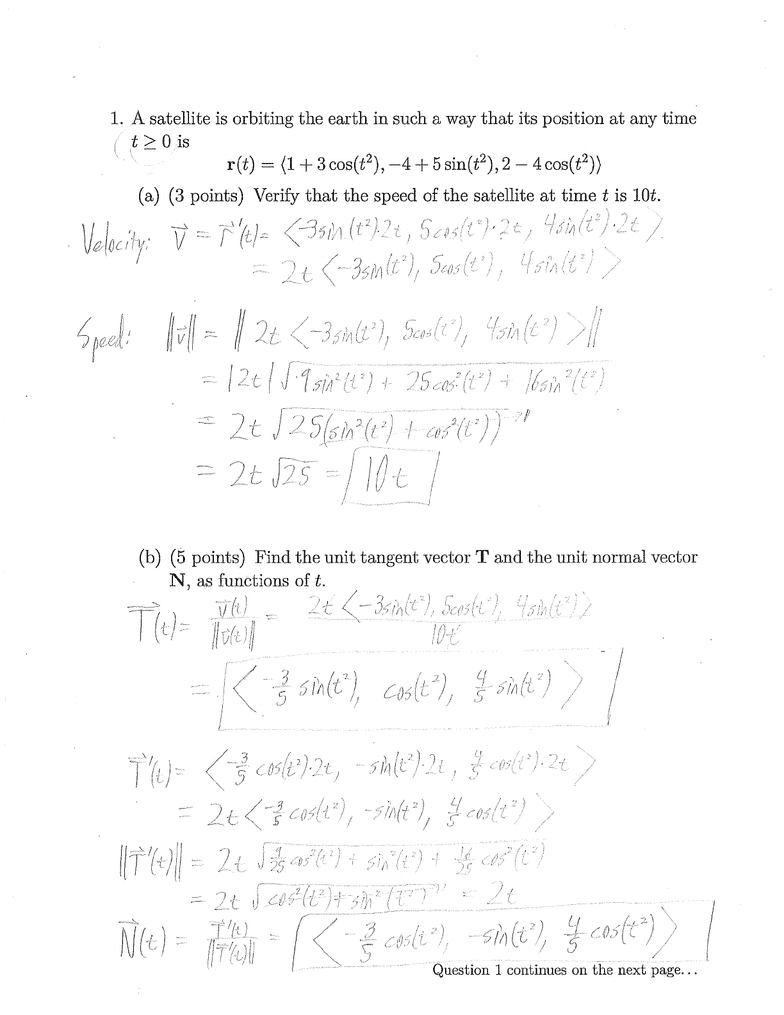 1. A satellite is orbiting the earth in such a way that its position at any time
t ≥ 0 is
r(t) = ⟨1 + 3 cos(t²), −4 + 5 sin(t²), 2 − 4 cos(t²)⟩
(a) (3 points) Verify that the speed of the satellite at time t is 10t.
Velocity: v⃗ = r⃗'(t) = <-3sin(t²)·2t, 5cos(t²)·2t, 4sin(t²)·2t>
= 2t <-3sin(t²), 5cos(t²), 4sin(t²)>
Speed: ||v⃗|| = || 2t <-3sin(t²), 5cos(t²), 4sin(t²)>||
= |2t| √9sin²(t²) + 25cos²(t²) + 16sin²(t²)
= 2t √25(sin²(t²) + cos²(t²))
= 2t √25 = 10t
(b) (5 points) Find the unit tangent vector T and the unit normal vector
N, as functions of t.
T⃗(t) = v⃗(t)/||v⃗(t)|| = 2t <-3sin(t²), 5cos(t²), 4sin(t²)>/10t
= <-3/5 sin(t²), cos(t²), 4/5 sin(t²)>
T⃗'(t) = <-3/5 cos(t²)·2t, -sin(t²)·2t, 4/5 cos(t²)·2t>
= 2t <-3/5 cos(t²), -sin(t²), 4/5 cos(t²)>
||T⃗'(t)|| = 2t √9/25 cos²(t²) + sin²(t²) + 16/25 cos²(t²)
= 2t √cos²(t²) + sin²(t²) = 2t
N⃗(t) = T⃗'(t)/||T⃗'(t)|| = <-3/5 cos(t²), -sin(t²), 4/5 cos(t²)>
Question 1 continues on the next page...